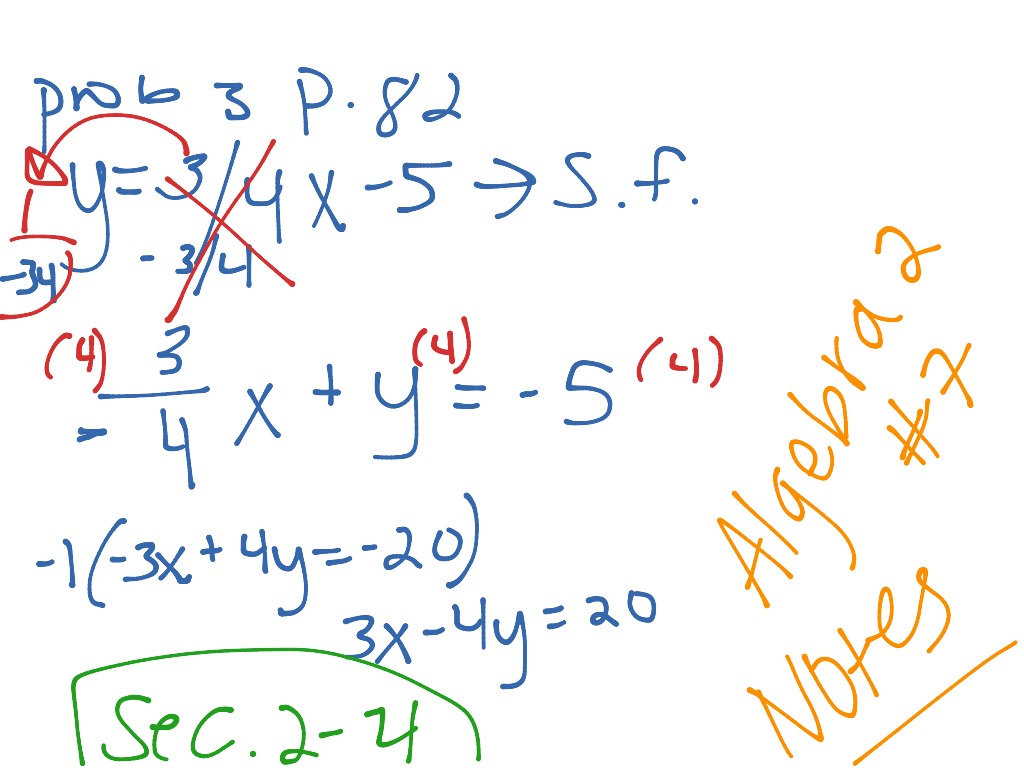 prob 3 P. 82
y = 3/4 x - 5 → S.f.
-34 - 3/4
(4) (4) (4)
- 3/4 x + y = - 5
-1(-3x + 4y = -20)
3x - 4y = 20
Sec. 2-4
Algebra 2
#7
Notes